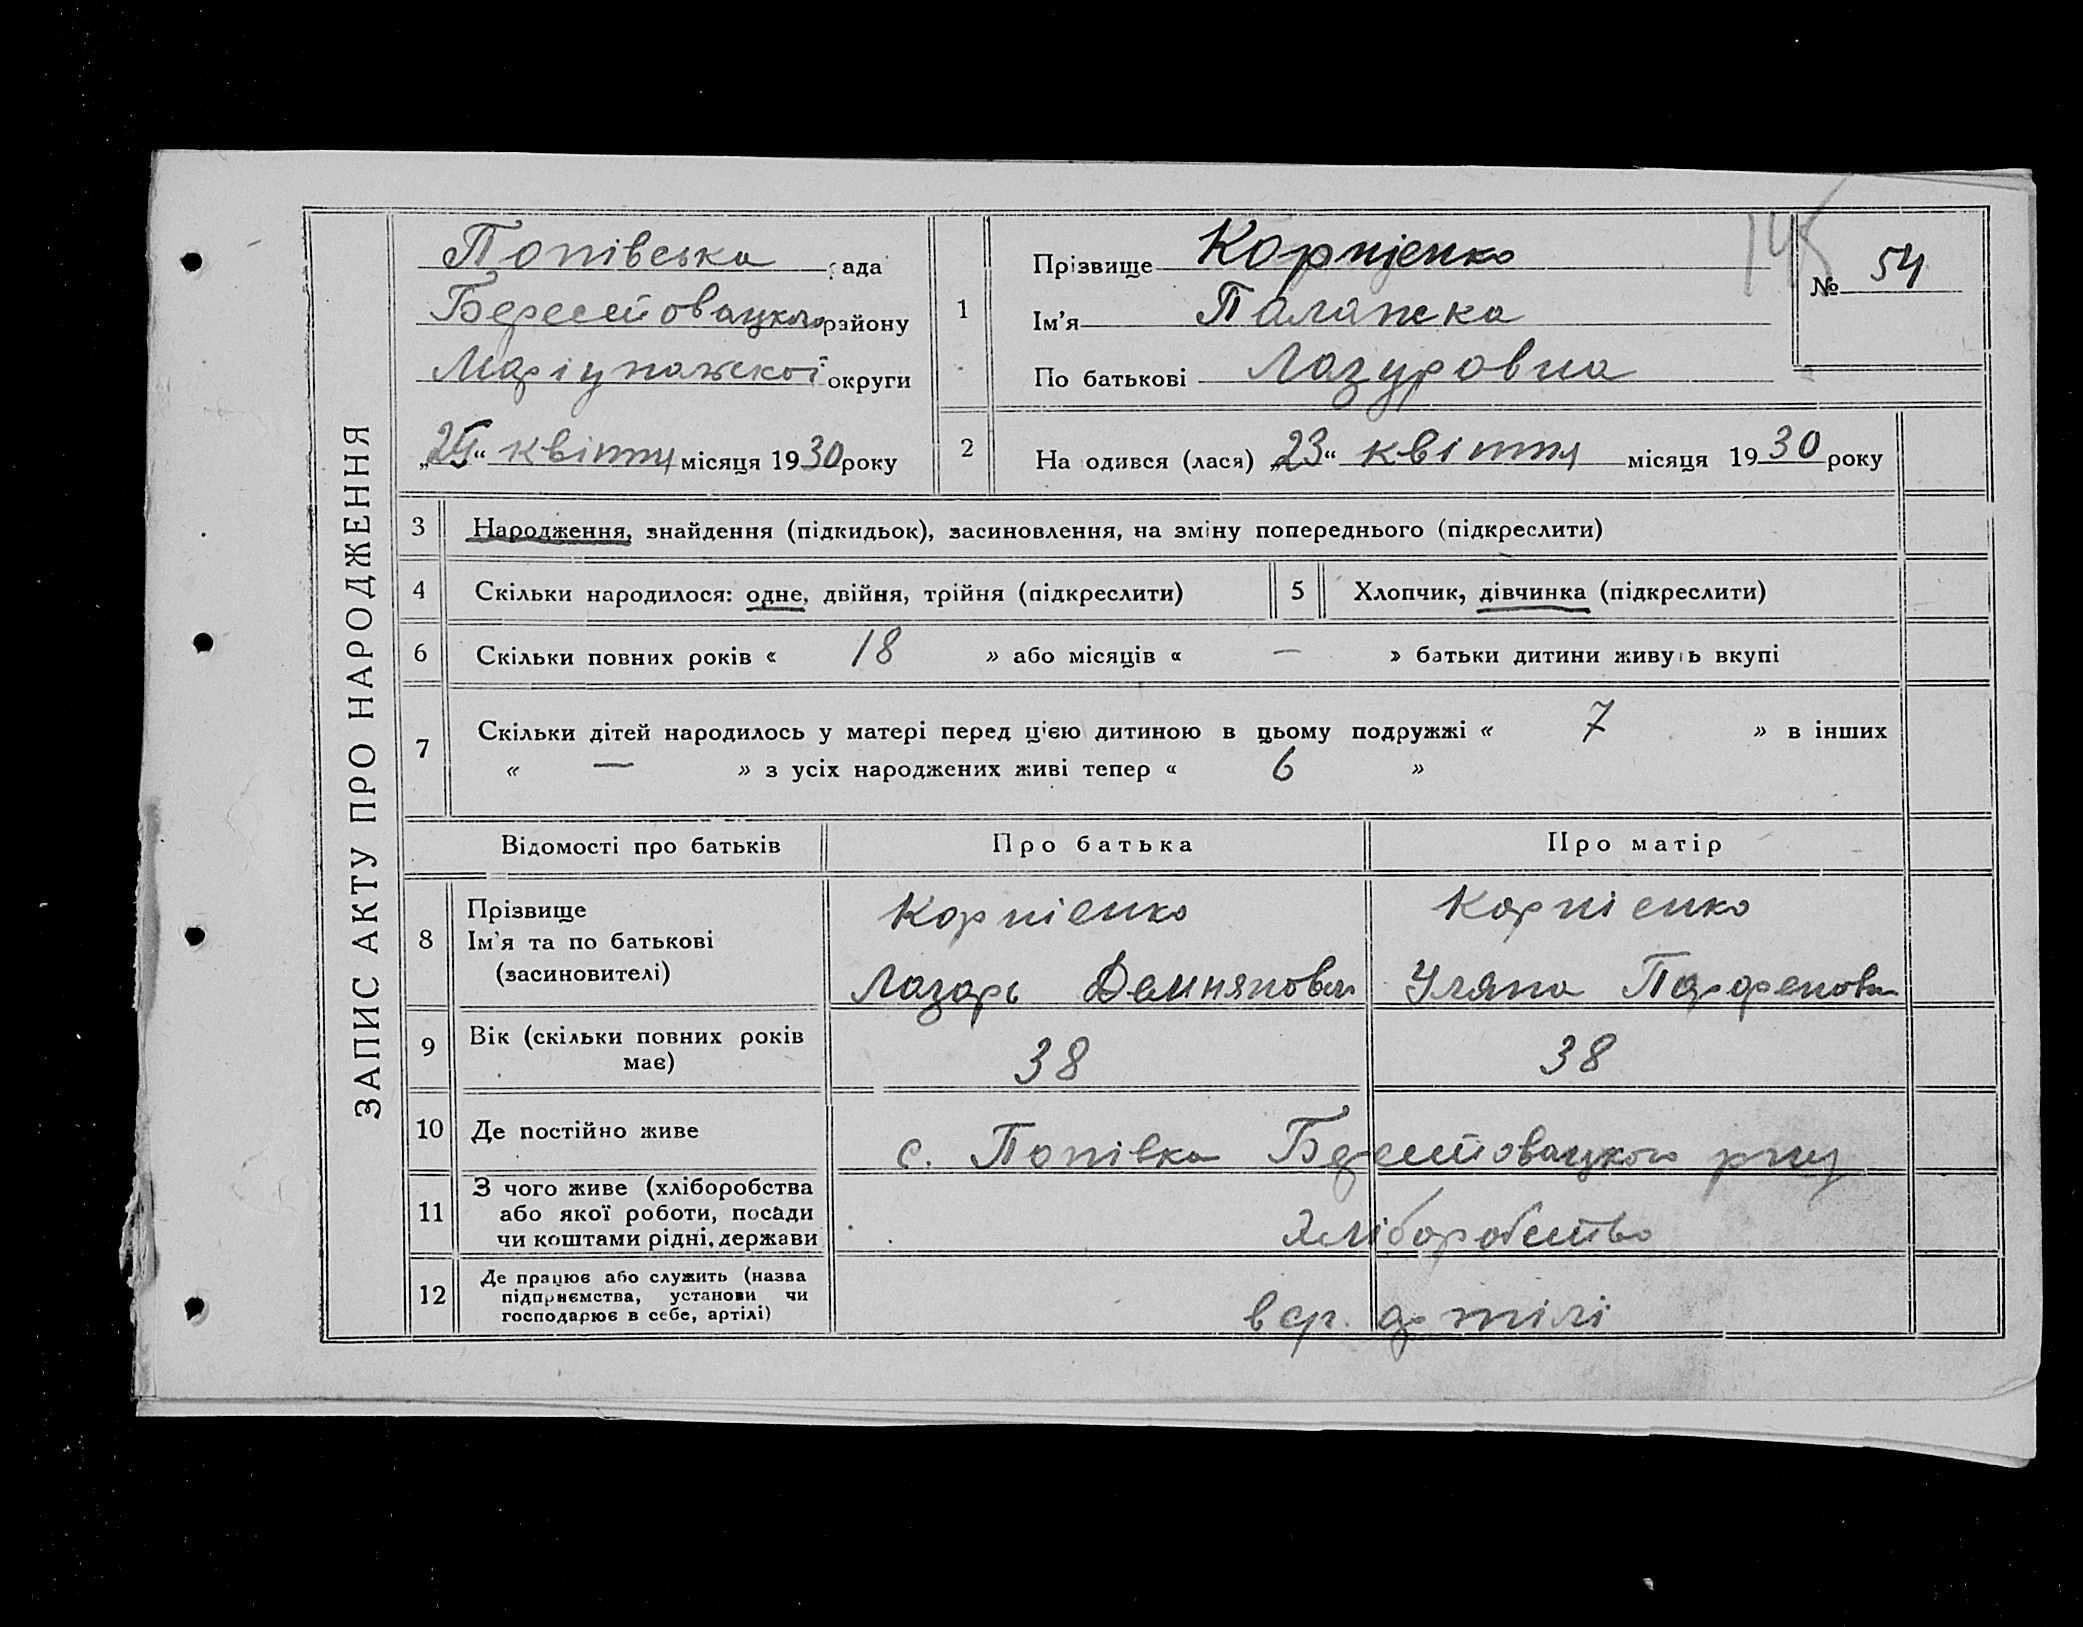 ЗАПИС АКТУ ПРО НАРОДЖЕННЯ
Попівська рада
Берестовацкого району
Маріупольскої округи
„24“ квітня місяця 1930 року
145
№ 54
1
Прізвище Корнієнко
Ім'я Палажка
По батькові Лазуровна
2 На одився (лася) „23“ квітня місяця 1930 року
3 Народження, знайдення (підкидьок), засиновлення, на зміну попереднього (підкреслити)
4 Скільки народилося: одне, двійня, трійня (підкреслити) 5 Хлопчик, дівчинка (підкреслити)
6 Скільки повних років « 18 » або місяців « — » батьки дитини живуть вкупі
7 Скільки дітей народилось у матері перед цією дитиною в цьому подружжі « 7 » в інших
« — » з усіх народжених живі тепер « 6 »
Відомості про батьків Про батька Про матір
8 Прізвище
Ім'я та по батькові
(засиновителі)
Корнієнко
Лазарь
Корнієнко
Уляна Парфеновна
9 Вік (скільки повних років
має)
38 38
10 Де постійно живе с. Попівка Берестовацкого р-ну
11 З чого живе (хліборобства
або якої роботи, посади
чи коштами рідні, держави
хліборобство
12 Де працює або служить (назва
підприємства, установи чи
господарює в себе, артілі)
в ср. артілі